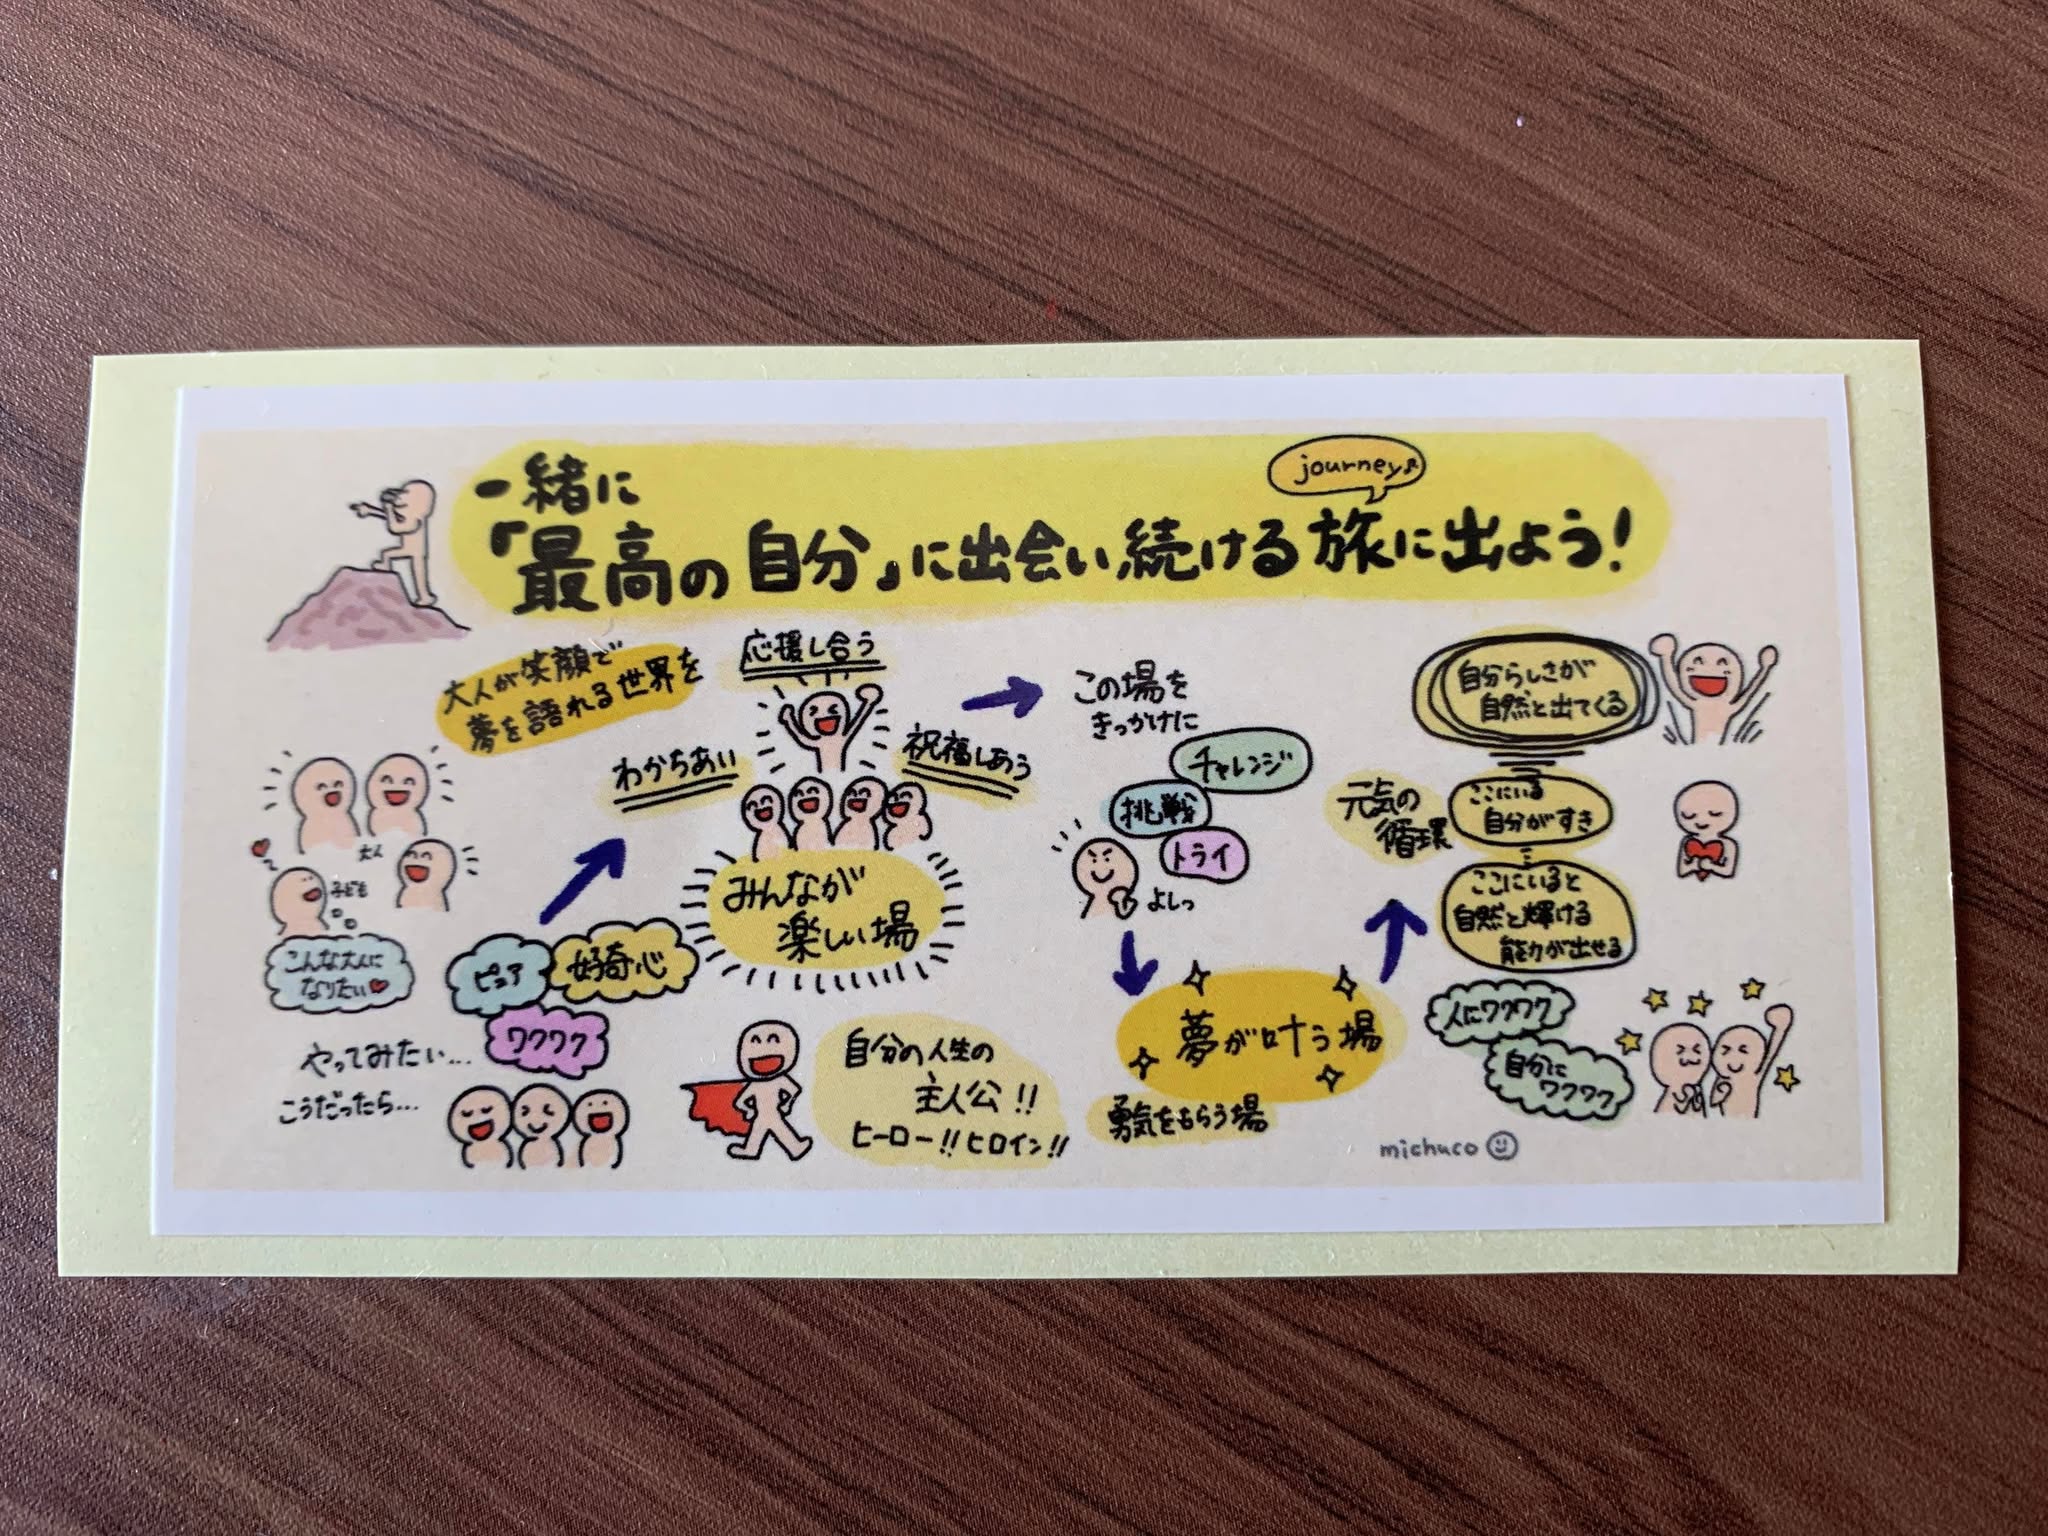 journey♪
一緒に
「最高の自分」に出会い続ける旅に出よう!
大人が笑顔で
夢を語れる世界を
大人
子ども
こんな大人に
なりたい♥
やってみたい...
こうだったら...
ピュア
好奇心
ワクワク
わかちあい
応援し合う
祝福しあう
みんなが
楽しい場
自分の人生の
主人公!!
ヒーロー!!ヒロイン!!
この場を
きっかけに
チャレンジ
挑戦
トライ
よしっ
夢が叶う場
勇気をもらう場
元気の
循環
自分らしさが
自然と出てくる
ここにいる
自分がすき
ここにいると
自然と輝ける
能力が出せる
人にワクワク
自分に
ワクワク
michuco